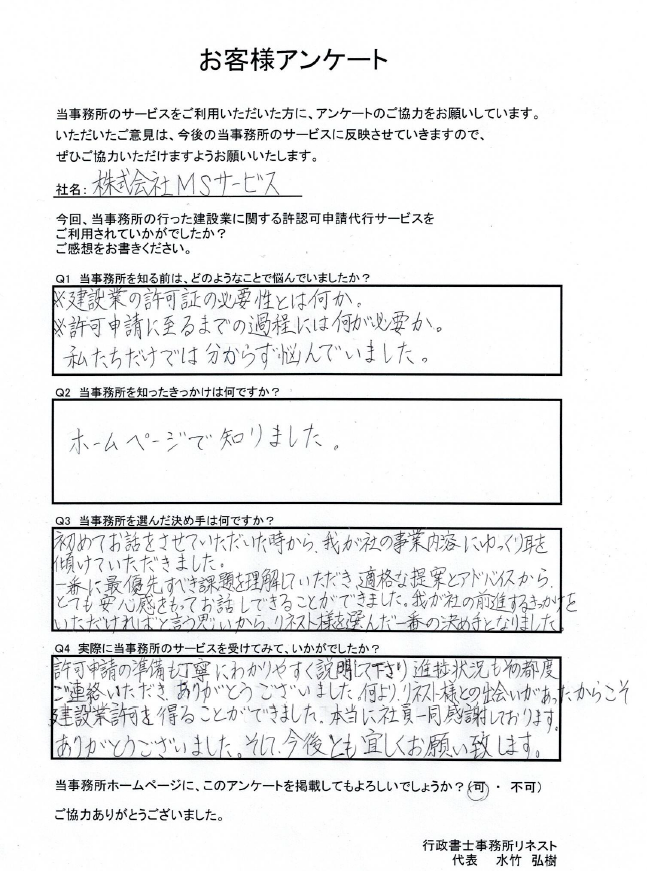 お客様アンケート
当事務所のサービスをご利用いただいた方に、アンケートのご協力をお願いしています。
いただいたご意見は、今後の当事務所のサービスに反映させていきますので、
ぜひご協力いただけますようお願いいたします。
社名: 株式会社MSサービス
今回、当事務所の行った建設業に関する許認可申請代行サービスを
ご利用されていかがでしたか？
ご感想をお書きください。
Q1 当事務所を知る前は、どのようなことで悩んでいましたか？
※建設業の許可証の必要性とは何か。
※許可申請に至るまでの過程には何が必要か。
私たちだけでは分からず悩んでいました。
Q2 当事務所を知ったきっかけは何ですか？
ホームページで知りました。
Q3 当事務所を選んだ決め手は何ですか？
初めてお話をさせていただいた時から、我が社の事業内容にゆっくり耳を
傾けていただきました。
一番に最優先すべき課題を理解していただき、適格な提案とアドバイスから、
とても安心感をもってお話しできることができました。我が社の前進するきっかけを
いただければと言う思いから、リネスト様を選んだ一番の決め手となりました。
Q4 実際に当事務所のサービスを受けてみて、いかがでしたか？
許可申請の準備も丁寧にわかりやすく説明して下さり 進捗状況もその都度
ご連絡いただき、ありがとうございました。何より、リネスト様との出会いがあったからこそ
建設業許可を得ることができました。本当に社員一同感謝しております。
ありがとうございました。そして、今後とも宜しくお願い致します。
当事務所ホームページに、このアンケートを掲載してもよろしいでしょうか？(可 ・ 不可)
ご協力ありがとうございました。
行政書士事務所リネスト
代表 水竹 弘樹